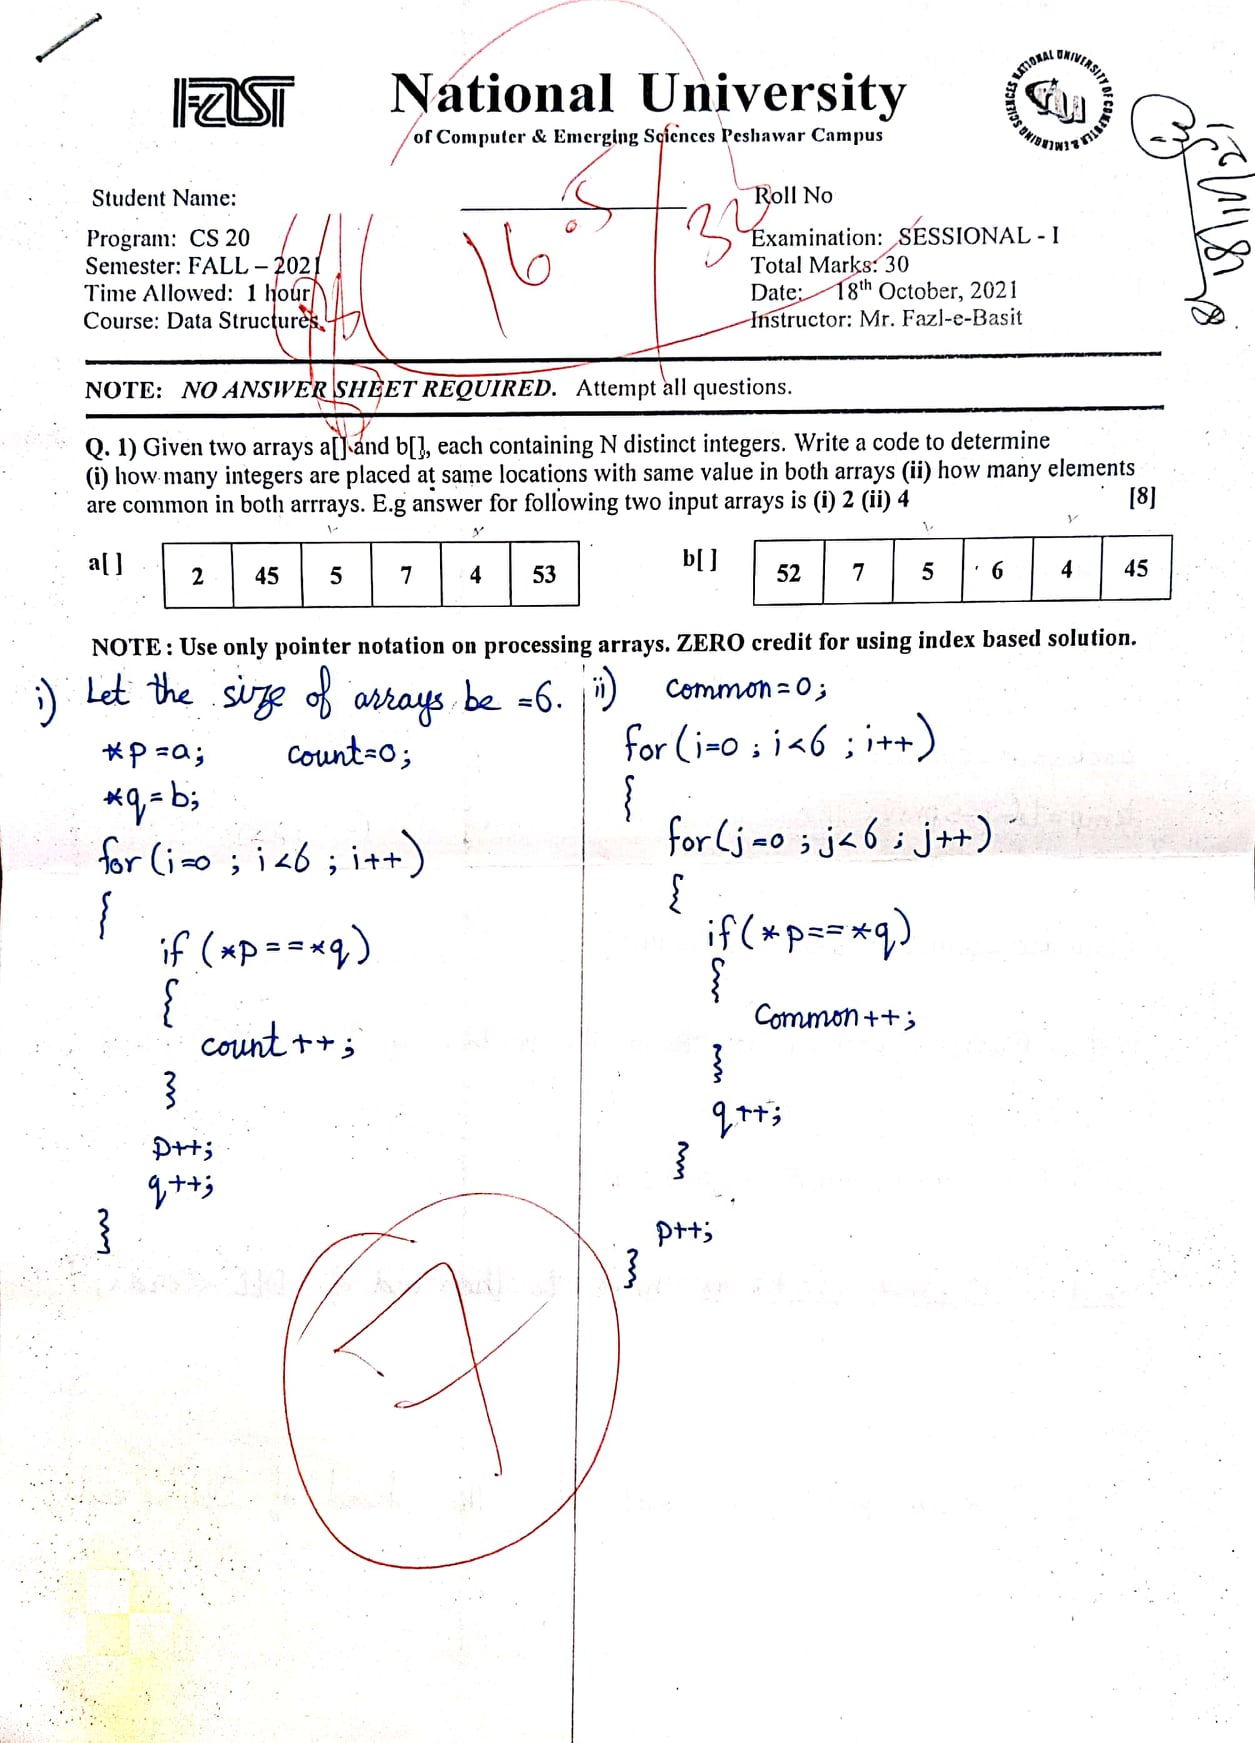 FAST
National University
of Computer & Emerging Sciences Peshawar Campus
NATIONAL UNIVERSITY OF COMPUTER & EMERGING SCIENCES
Student Name:
Roll No
Program: CS 20
Examination: SESSIONAL - I
Semester: FALL – 2021
Total Marks: 30
Time Allowed: 1 hour
Date: 18th October, 2021
Course: Data Structures
Instructor: Mr. Fazl-e-Basit
16.5
30
NOTE: NO ANSWER SHEET REQUIRED. Attempt all questions.
Q. 1) Given two arrays a[] and b[], each containing N distinct integers. Write a code to determine
(i) how many integers are placed at same locations with same value in both arrays (ii) how many elements
are common in both arrrays. E.g answer for following two input arrays is (i) 2 (ii) 4 [8]
a[ ] 2 45 5 7 4 53
b[ ] 52 7 5 6 4 45
NOTE : Use only pointer notation on processing arrays. ZERO credit for using index based solution.
i) Let the size of arrays be =6.
*p=a; count=0;
*q=b;
for(i=0 ; i<6 ; i++)
{
if (*p==*q)
{
count++;
}
p++;
q++;
}
7
ii) common=0;
for(i=0 ; i<6 ; i++)
{
for(j=0 ; j<6 ; j++)
{
if(*p==*q)
{
Common++;
}
q++;
}
p++;
}